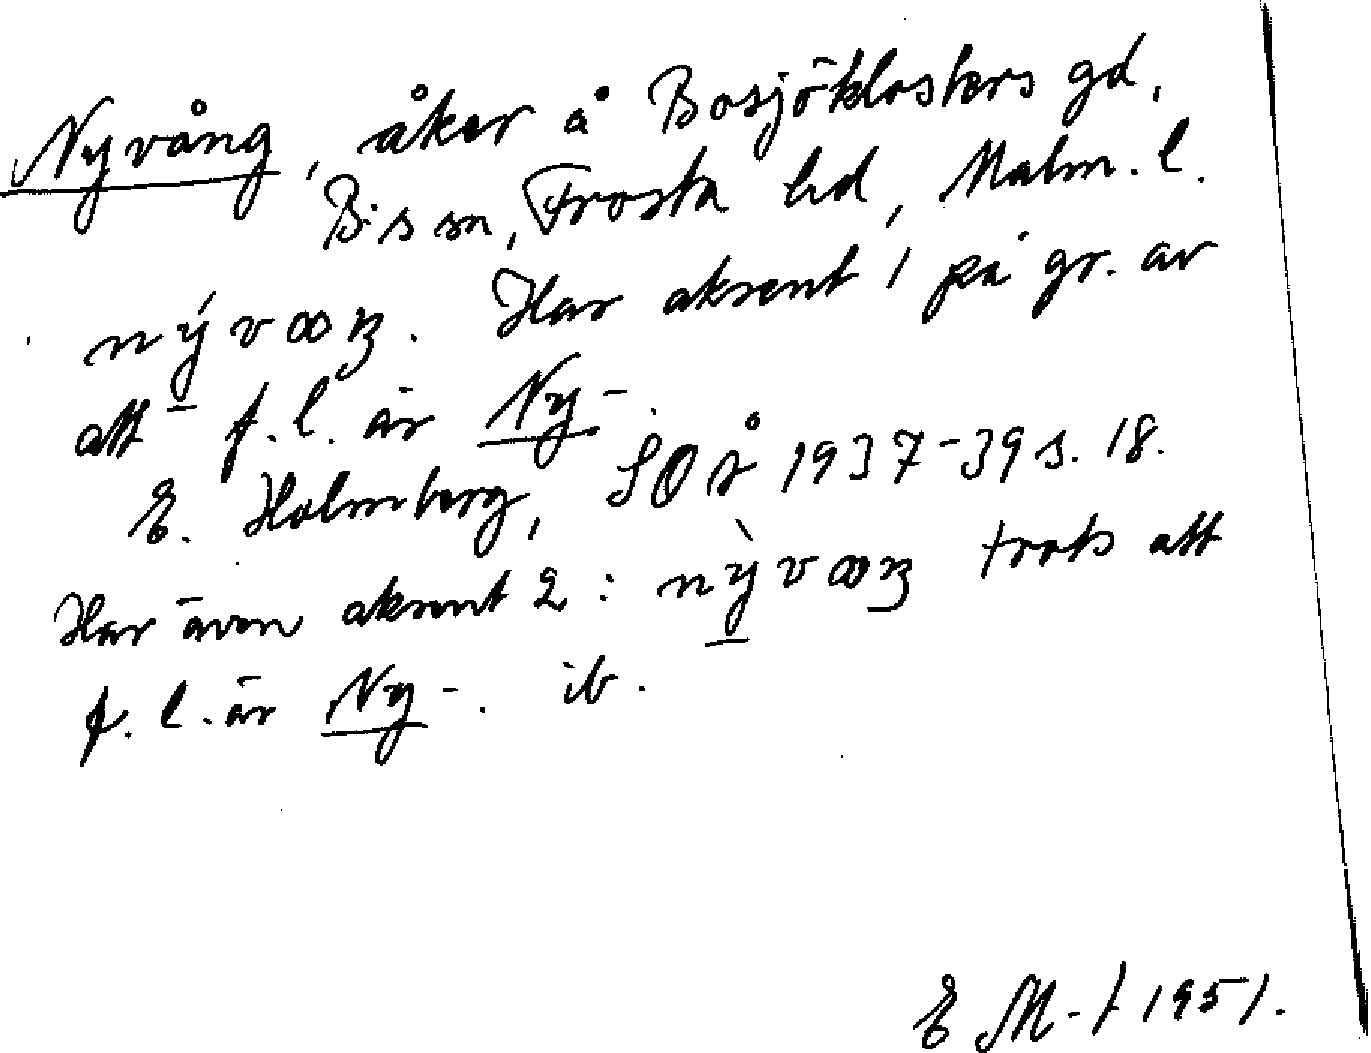 Nyvång, åker å Bosjöklosters gd,
B:s sn, Frosta hd, Malm. l.
nývꝏŋ. Har aksent 1 på gr. av
att f.l. är Ny-.
E. Holmberg, SOÅ 1937-39 s. 18.
Har även aksent 2: nỳvꝏŋ trots att
f.l. är Ny-. ib.
E M-f 1951.